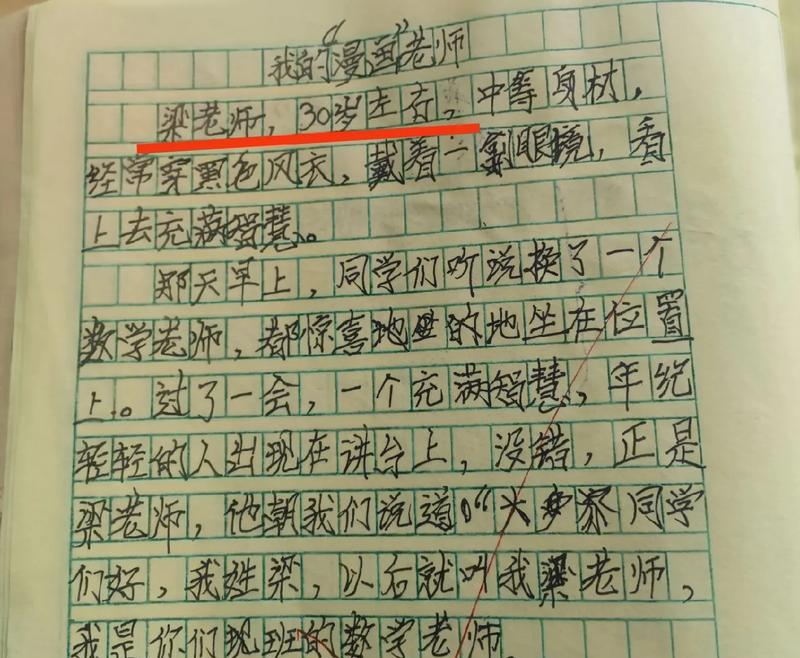 我的“漫画”老师
梁老师，30岁左右，中等身材，
经常穿黑色风衣，戴着一副眼镜，看
上去充满智慧。
那天早上，同学们听说换了一个
数学老师，都惊喜地的地坐在位置
上。过了一会，一个充满智慧，年纪
轻轻的人出现在讲台上，没错，正是
梁老师，他朝我们说道“大家同学
们好，我姓梁，以后就叫我梁老师，
我是你们现班的数学老师